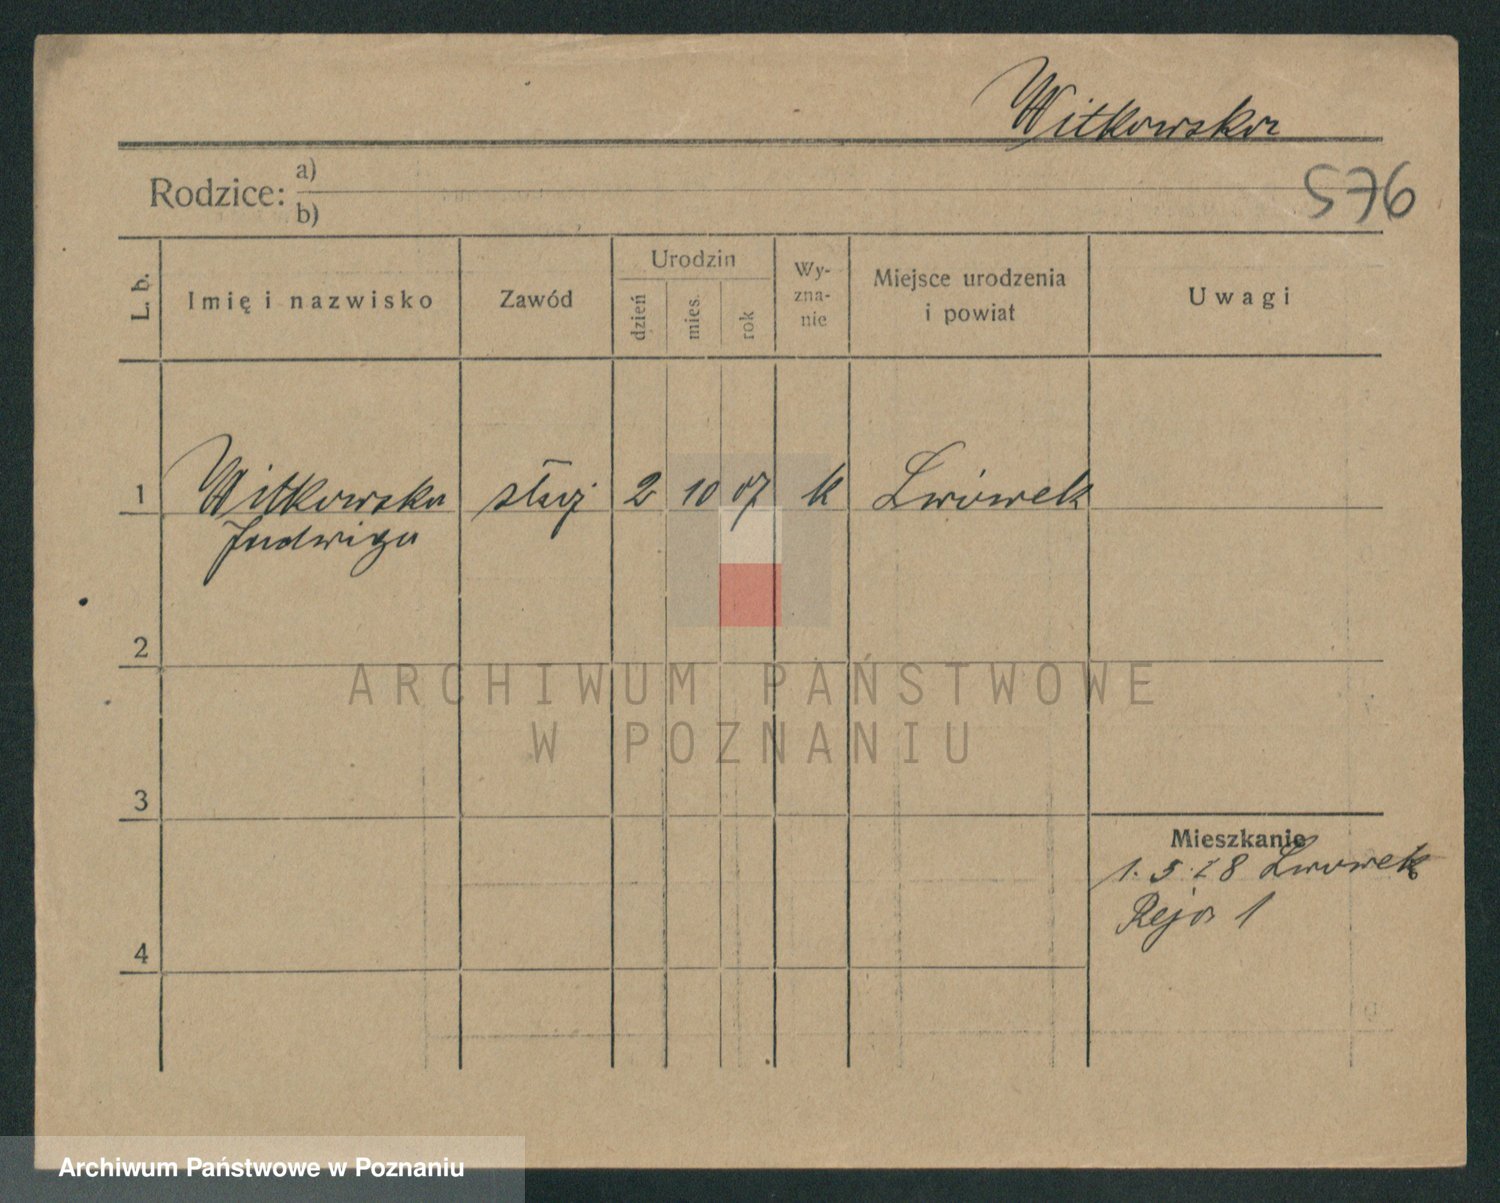 Witkowska
576
Rodzice: a)
b)
L. b.
Imię i nazwisko
Zawód
Urodzin
dzień
mies.
rok
Wy-
zna-
nie
Miejsce urodzenia
i powiat
Uwagi
1 Witkowska służ 2 10 07 k Lwówek
Jadwiga
2
3
4
Mieszkanie
1. 5. 28 Lwówek
Reja 1
ARCHIWUM PAŃSTWOWE
W POZNANIU
Archiwum Państwowe w Poznaniu